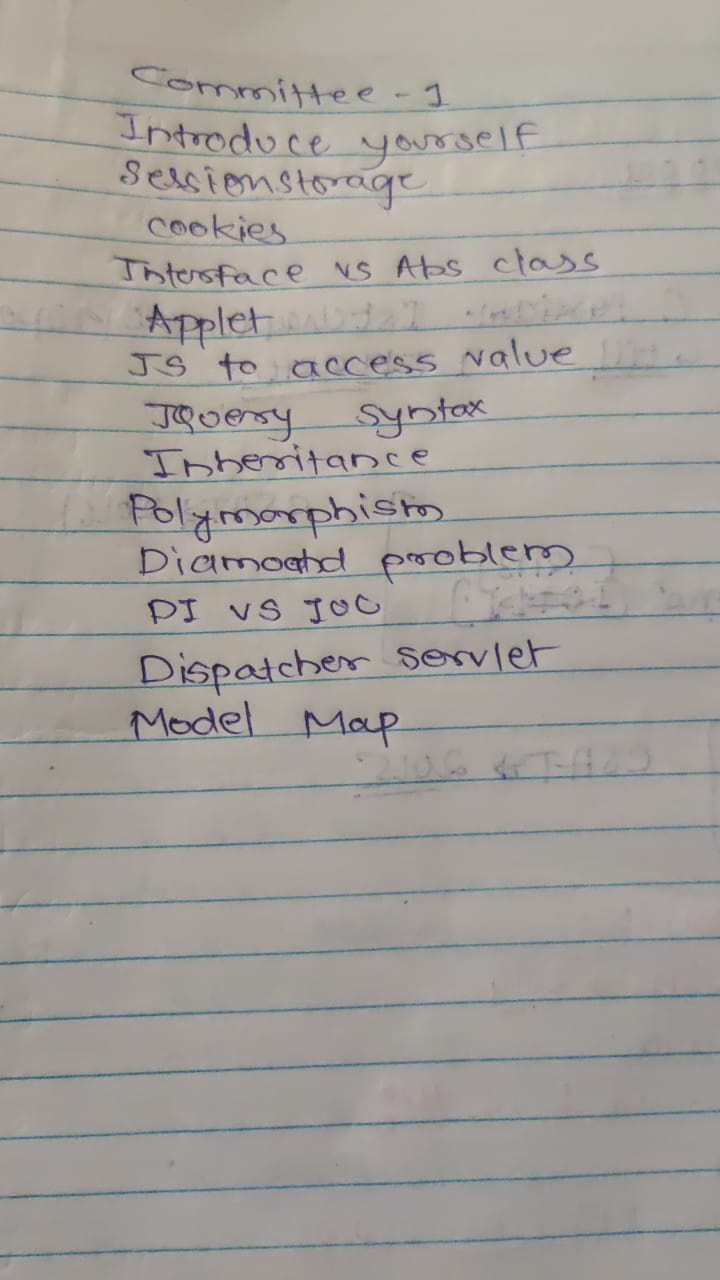 Committee - 1
Introduce yourself
Sessionstorage
cookies
Interface vs Abs class
Applet
JS to access value
JQuery syntax
Inheritance
Polymorphism
Diamond problem
DI vs IOC
Dispatcher servlet
Model Map